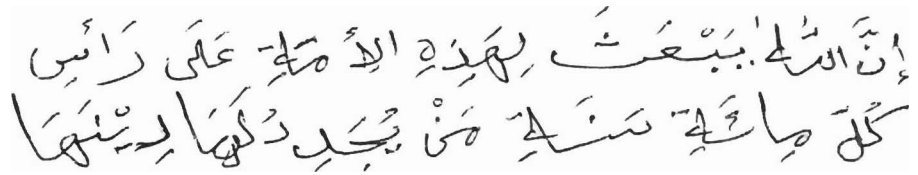 إِنَّ اللهَ يَبْعَثُ لِهَذِهِ الأُمَّةِ عَلَى رَأْسِ
كُلِّ مِائَةِ سَنَةٍ مَنْ يُجَدِّدُ لَهَا دِيْنَهَا